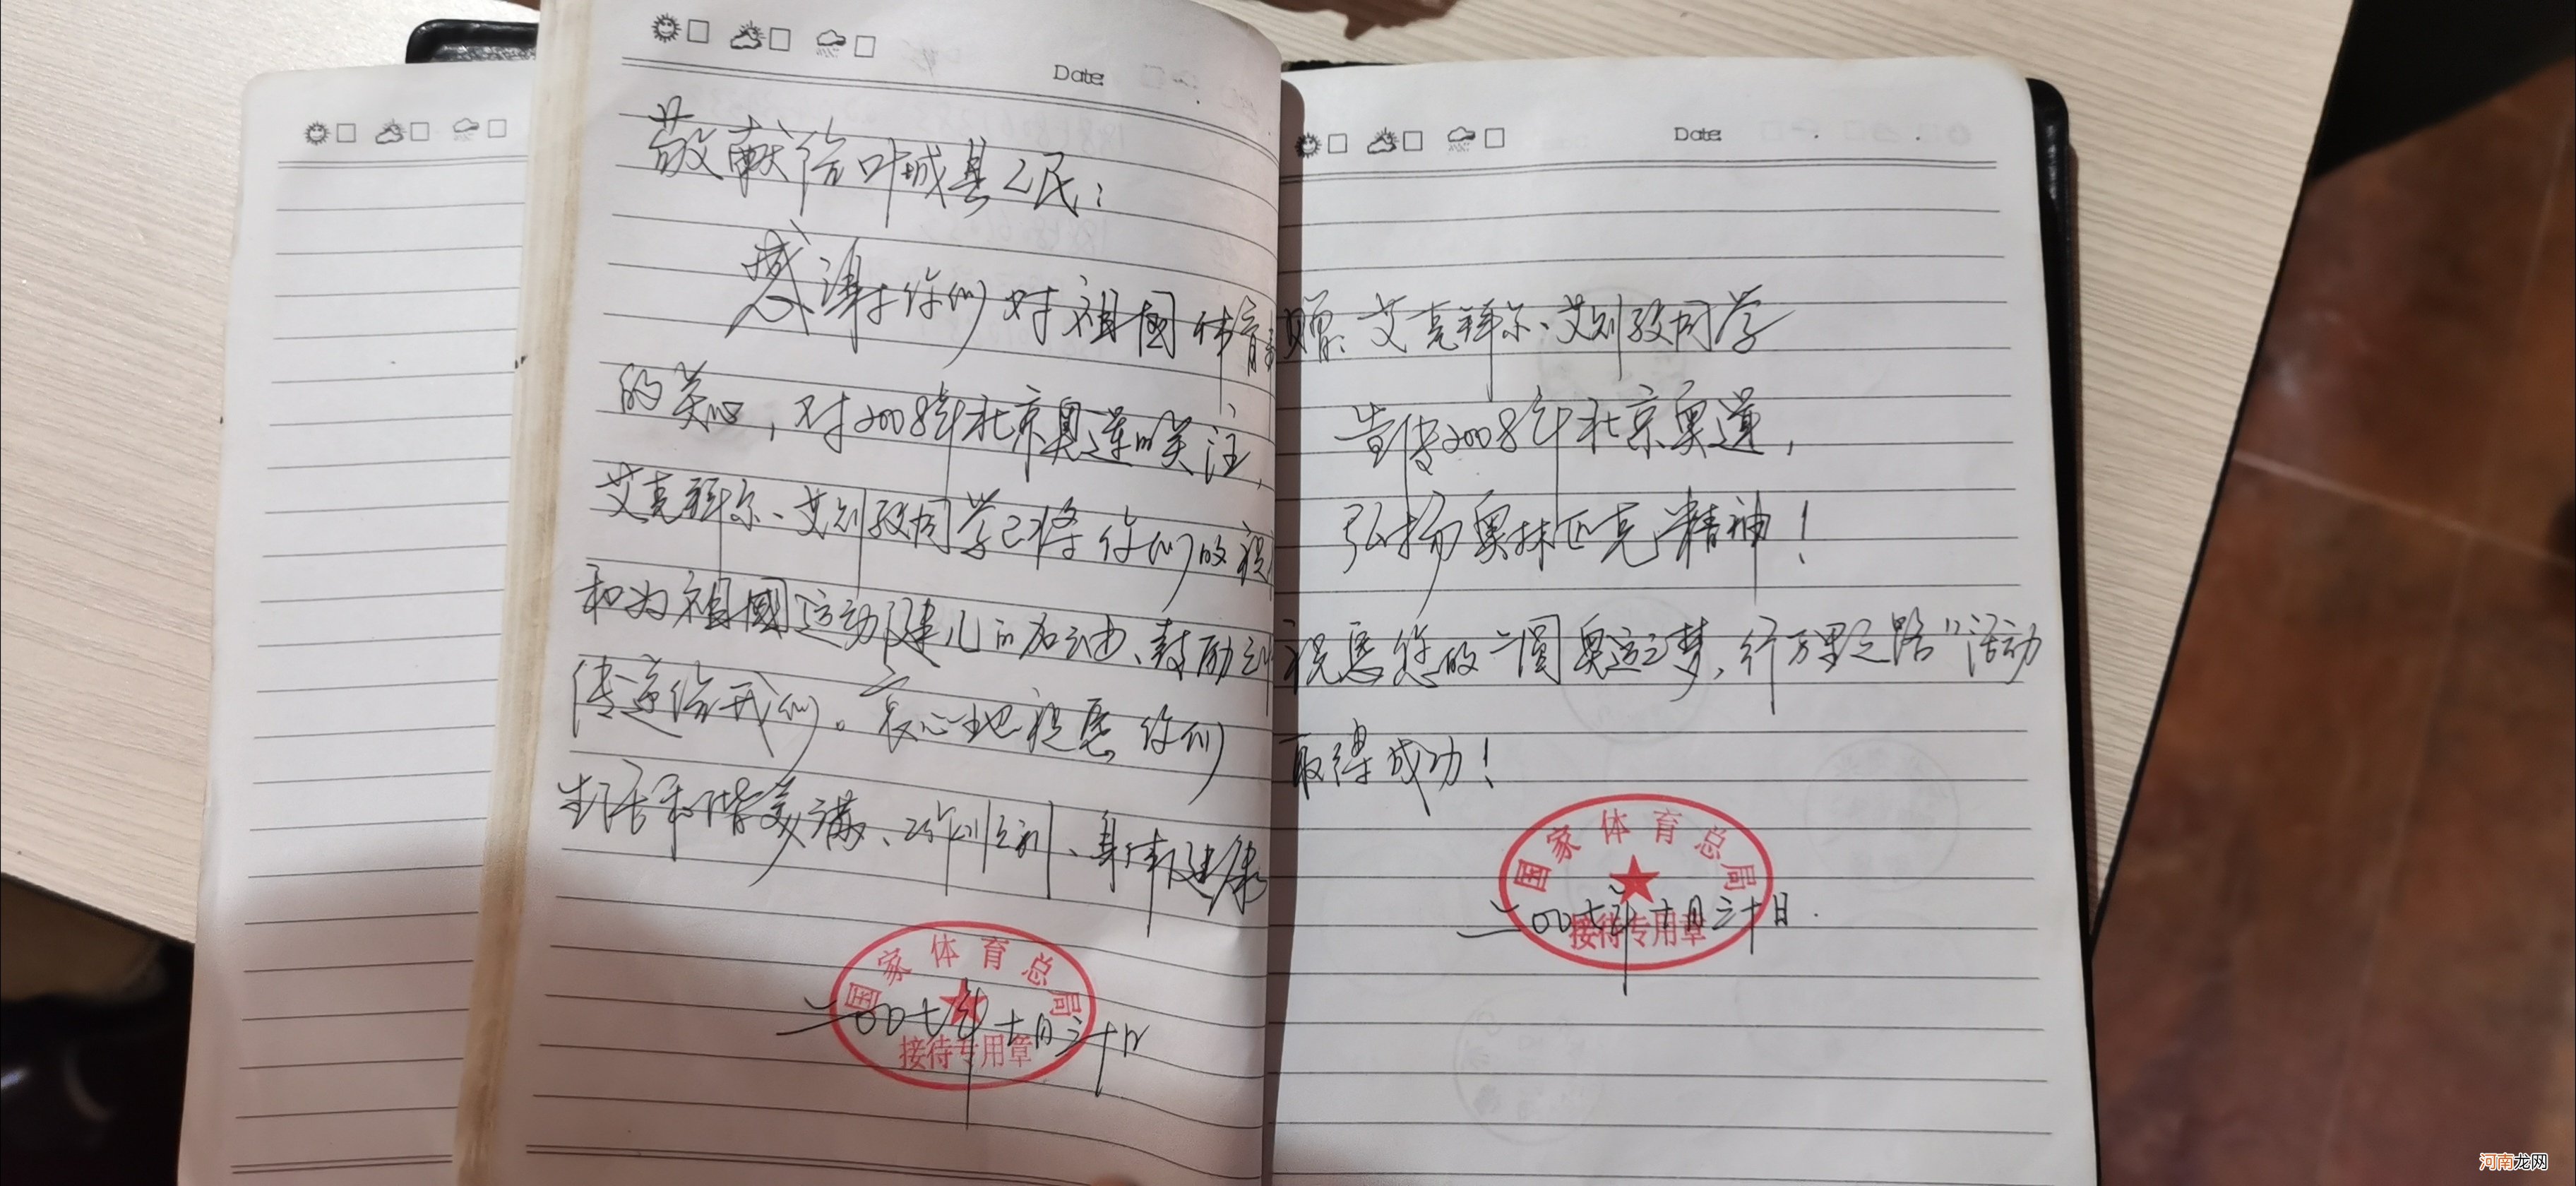 Date:
敬献给叶城县人民：
感谢你们对祖国体育
的关心，对2008年北京奥运的关注，
艾克拜尔、艾则孜同学已将你们的祝
和为祖国运动健儿的加油、鼓励
传递给我们。衷心地祝愿你们
生活和谐美满、工作顺利、身体健康
国家体育总局
二〇〇七年十月三十日
接待专用章
Date:
赠：艾克拜尔、艾则孜同学
宣传2008年北京奥运，
弘扬奥林匹克精神！
祝愿您的“圆奥运之梦，行万里之路”活动
取得成功！
国家体育总局
二〇〇七年十月三十日
接待专用章
河南龙网